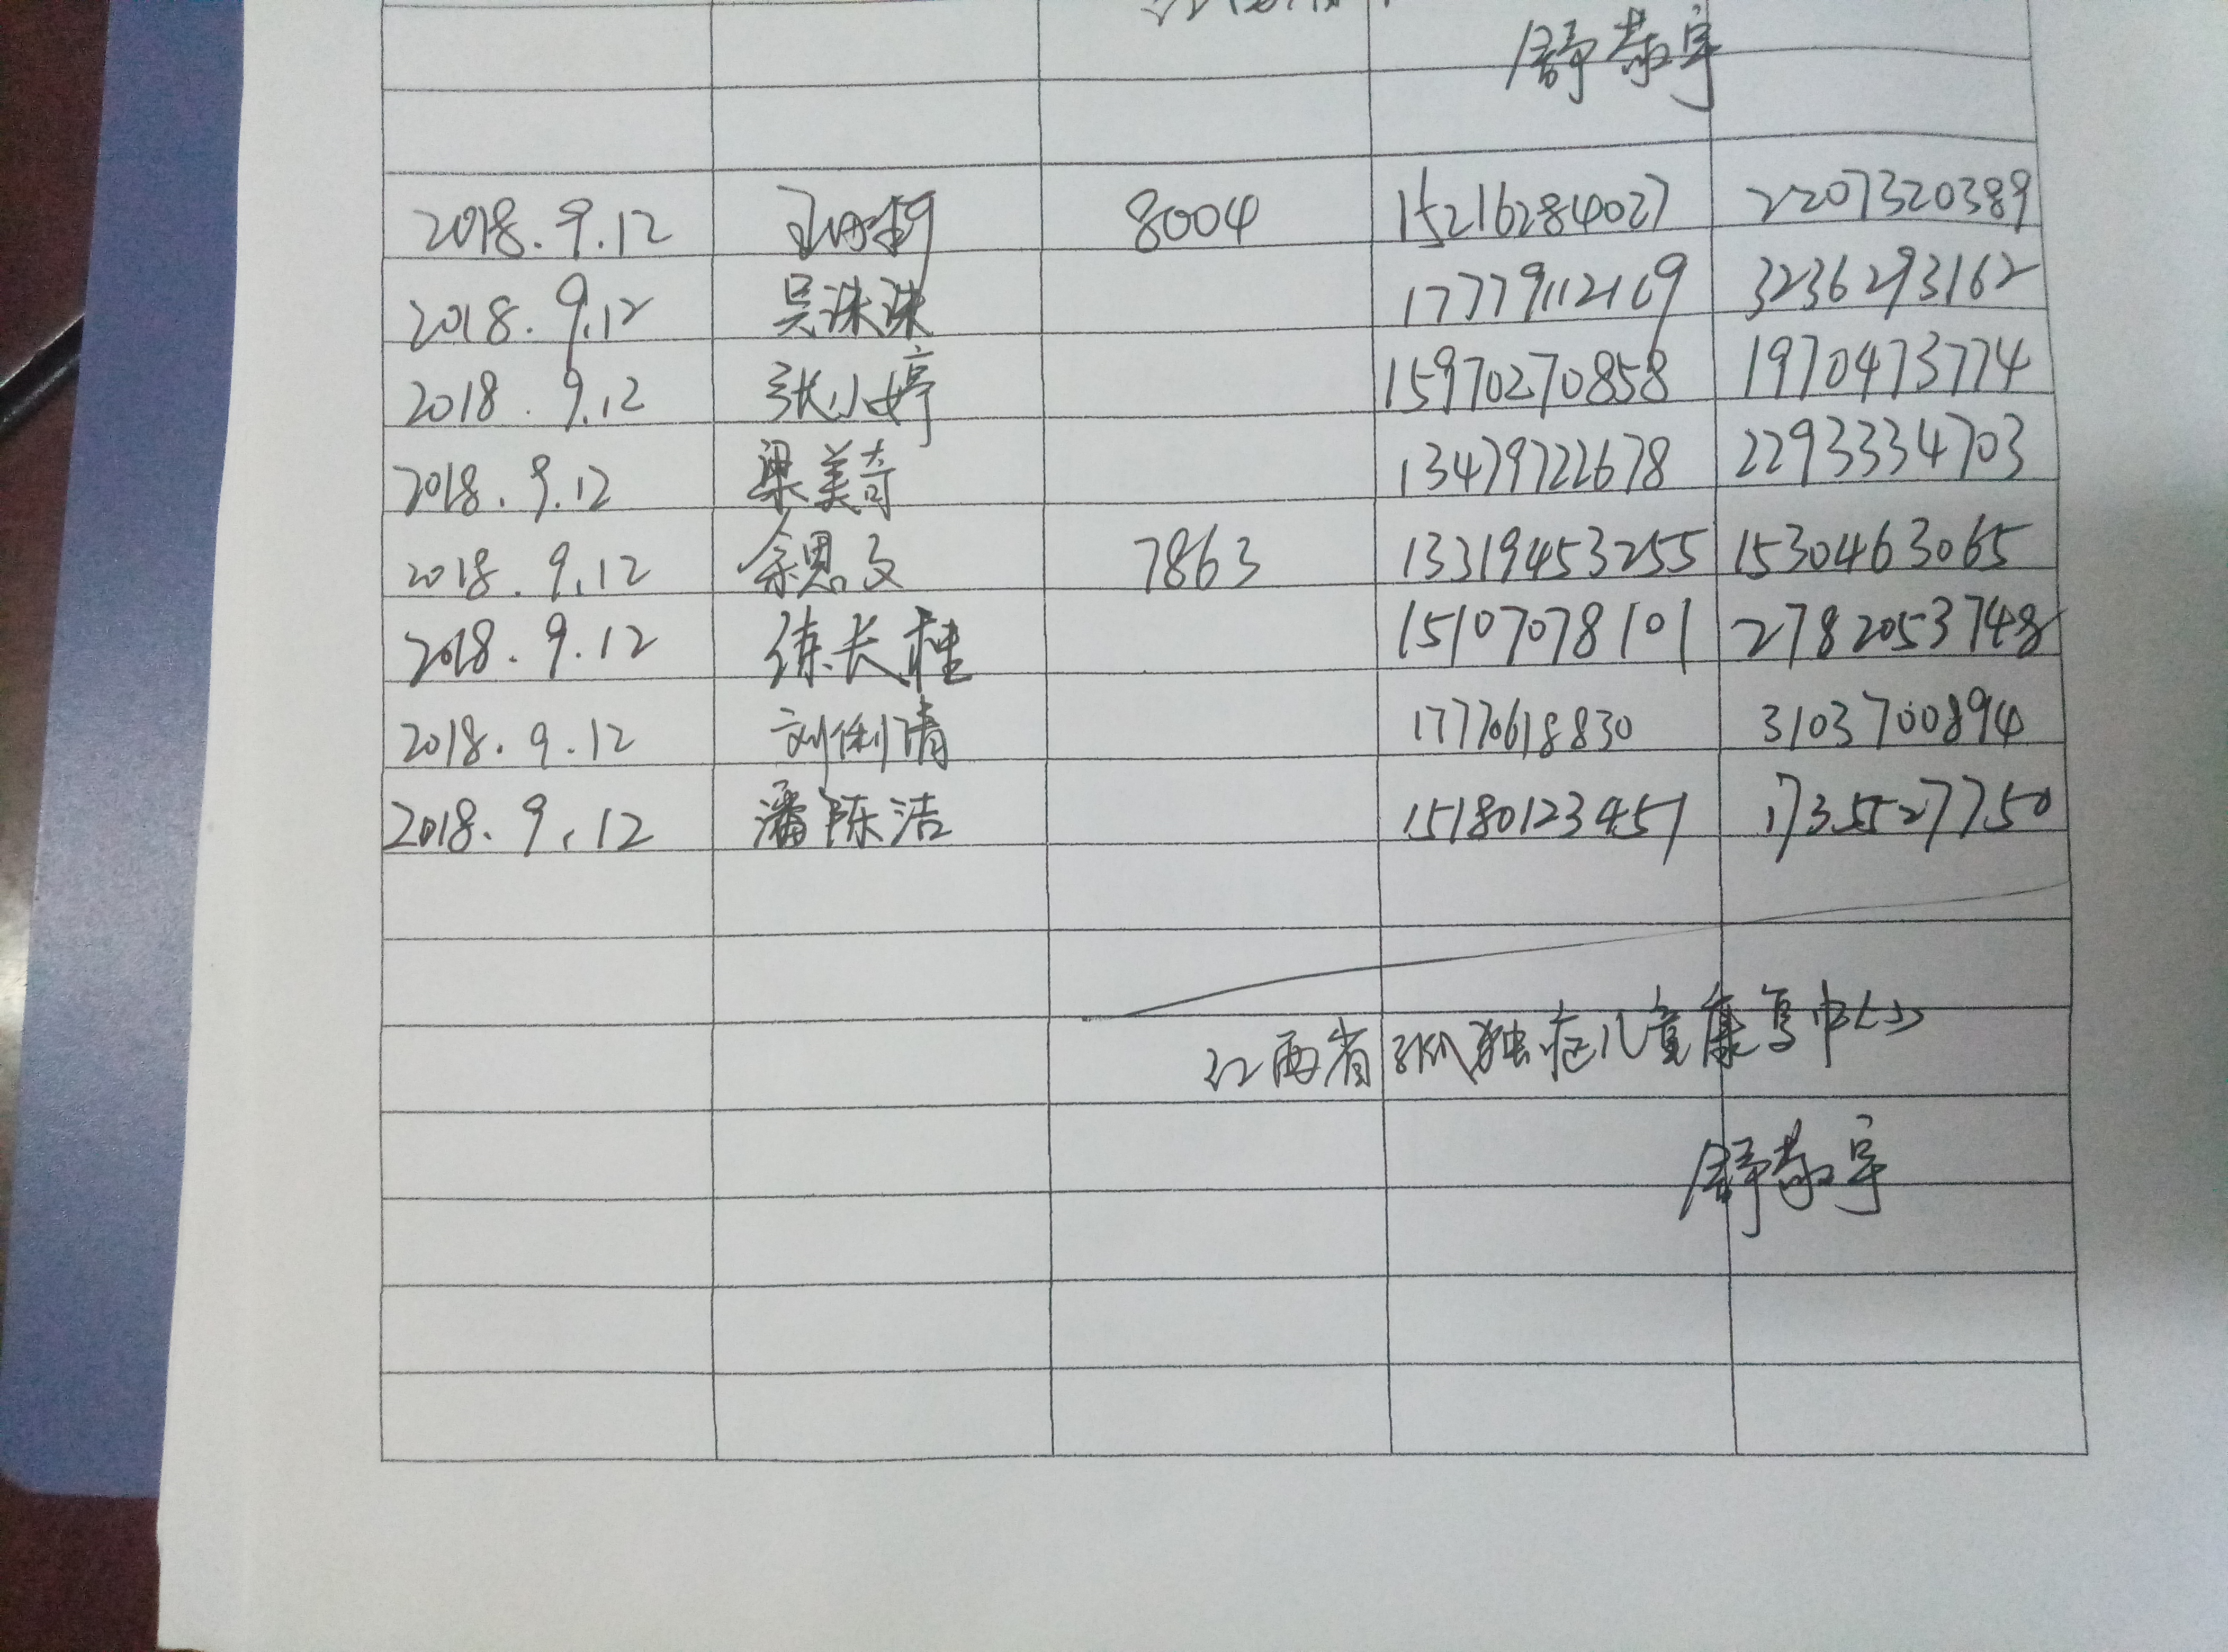 舒敬宇
2018.9.12 8004 15216284027 2207320389
2018.9.12 吴洙洙 17779112169 3236293162
2018.9.12 张小婷 15970270858 1970473774
2018.9.12 梁美奇 13479722678 2293334703
2018.9.12 余思文 7863 13319453255 1530463065
2018.9.12 练长桂 15107078101 2782053748
2018.9.12 刘俐清 17770618830 3103700894
2018.9.12 潘陈洁 15180123457 1735527750
江西省孤独症儿童康复中心
舒敬宇